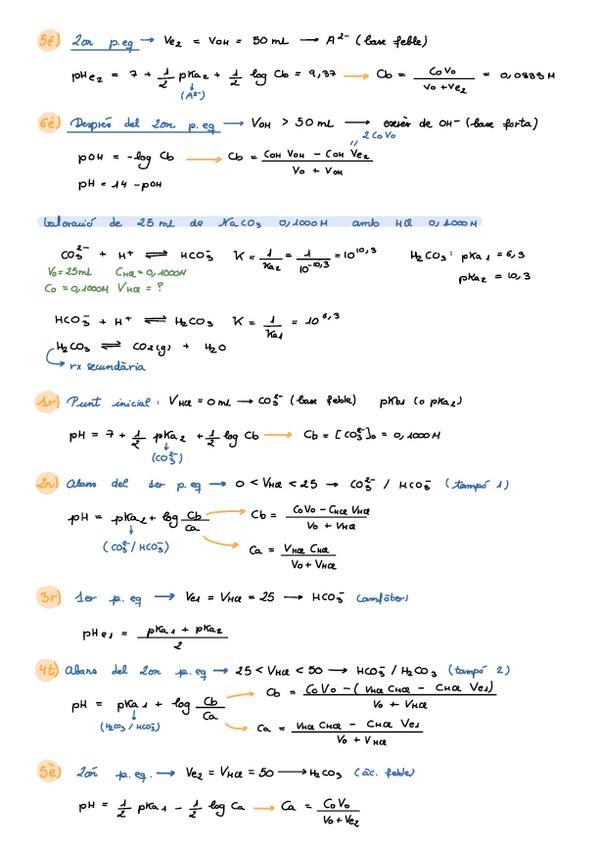 5è) 2on p.eq → Ve₂ = VOH = 50 mL → A²⁻ (base feble)
pHe₂ = 7 + 1/2 pKa₂ + 1/2 log Cb = 9,37 → Cb = CoVo / Vo+Ve₂ = 0,0333 M
↓ (A²⁻)
6è) Després del 2on p.eq → VOH > 50 mL → excés de OH⁻ (base forta)
2CoVo
"
pOH = -log Cb → Cb = COH VOH - COH Ve₂ / Vo + VOH
pH = 14 - pOH
Valoració de 25 mL de NaCO₃ 0,1000M amb HCl 0,1000M
CO₃²⁻ + H⁺ ⇌ HCO₃⁻ K = 1/Ka₂ = 1/10⁻¹⁰'³ = 10¹⁰'³ H₂CO₃: pKa₁ = 6,3
Vo = 25mL CHCl = 0,1000M pKa₂ = 10,3
Co = 0,1000M VHCl = ?
HCO₃⁻ + H⁺ ⇌ H₂CO₃ K = 1/Ka₁ = 10⁶'³
H₂CO₃ ⇌ CO₂(g) + H₂O
→ rx secundària
1r) Punt inicial: VHCl = 0 mL → CO₃²⁻ (base feble) pKb₁ (o pKa₂)
pH = 7 + 1/2 pKa₂ + 1/2 log Cb → Cb = [CO₃²⁻]₀ = 0,1000M
↓ (CO₃²⁻)
2n) Abans del 1er p.eq → 0 < VHCl < 25 → CO₃²⁻ / HCO₃⁻ (tampó 1)
pH = pKa₂ + log Cb/Ca → Cb = CoVo - CHCl VHCl / Vo + VHCl
↓ (CO₃²⁻/HCO₃⁻) → Ca = VHCl CHCl / Vo + VHCl
3r) 1er p.eq → Ve₁ = VHCl = 25 → HCO₃⁻ (amfòter)
pHe₁ = pKa₁ + pKa₂ / 2
4t) Abans del 2on p.eq → 25 < VHCl < 50 → HCO₃⁻ / H₂CO₃ (tampó 2)
pH = pKa₁ + log Cb/Ca → Cb = CoVo - (VHCl CHCl - CHCl Ve₁) / Vo + VHCl
↓ (H₂CO₃/HCO₃⁻) → Ca = VHCl CHCl - CHCl Ve₁ / Vo + VHCl
5è) 2on p.eq. → Ve₂ = VHCl = 50 → H₂CO₃ (àc. feble)
pH = 1/2 pKa₁ - 1/2 log Ca → Ca = CoVo / Vo+Ve₂